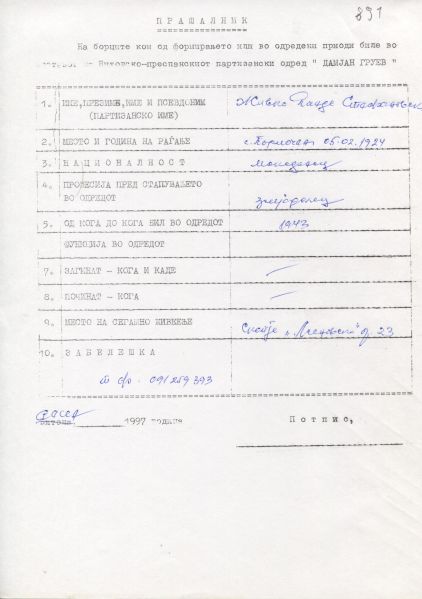 891
ПРАШАЛНИК
На борците кои од формирањето или во одредени приоди биле во
Битолско-преспанскиот партизански одред " ДАМЈАН ГРУЕВ "
1. ИМЕ, ПРЕЗИМЕ, ИМЕ И ПСЕВДОНИМ
(ПАРТИЗАНСКО ИМЕ)
Живко Панде Стефановски
2. МЕСТО И ГОДИНА НА РАЃАЊЕ
05.02.1924
3. НАЦИОНАЛНОСТ
македонец
4. ПРОФЕСИЈА ПРЕД СТАПУВАЊЕТО
ВО ОДРЕДОТ
земјоделец
5. ОД КОГА ДО КОГА БИЛ ВО ОДРЕДОТ
1943
ФУНКЦИЈА ВО ОДРЕДОТ
7. ЗАГИНАТ - КОГА И КАДЕ
8. ПОЧИНАТ - КОГА
9. МЕСТО НА СЕГАШНО ЖИВЕЊЕ
Скопје 23
10. ЗАБЕЛЕШКА
091/259 393
Битола, 1997 година
Потпис,